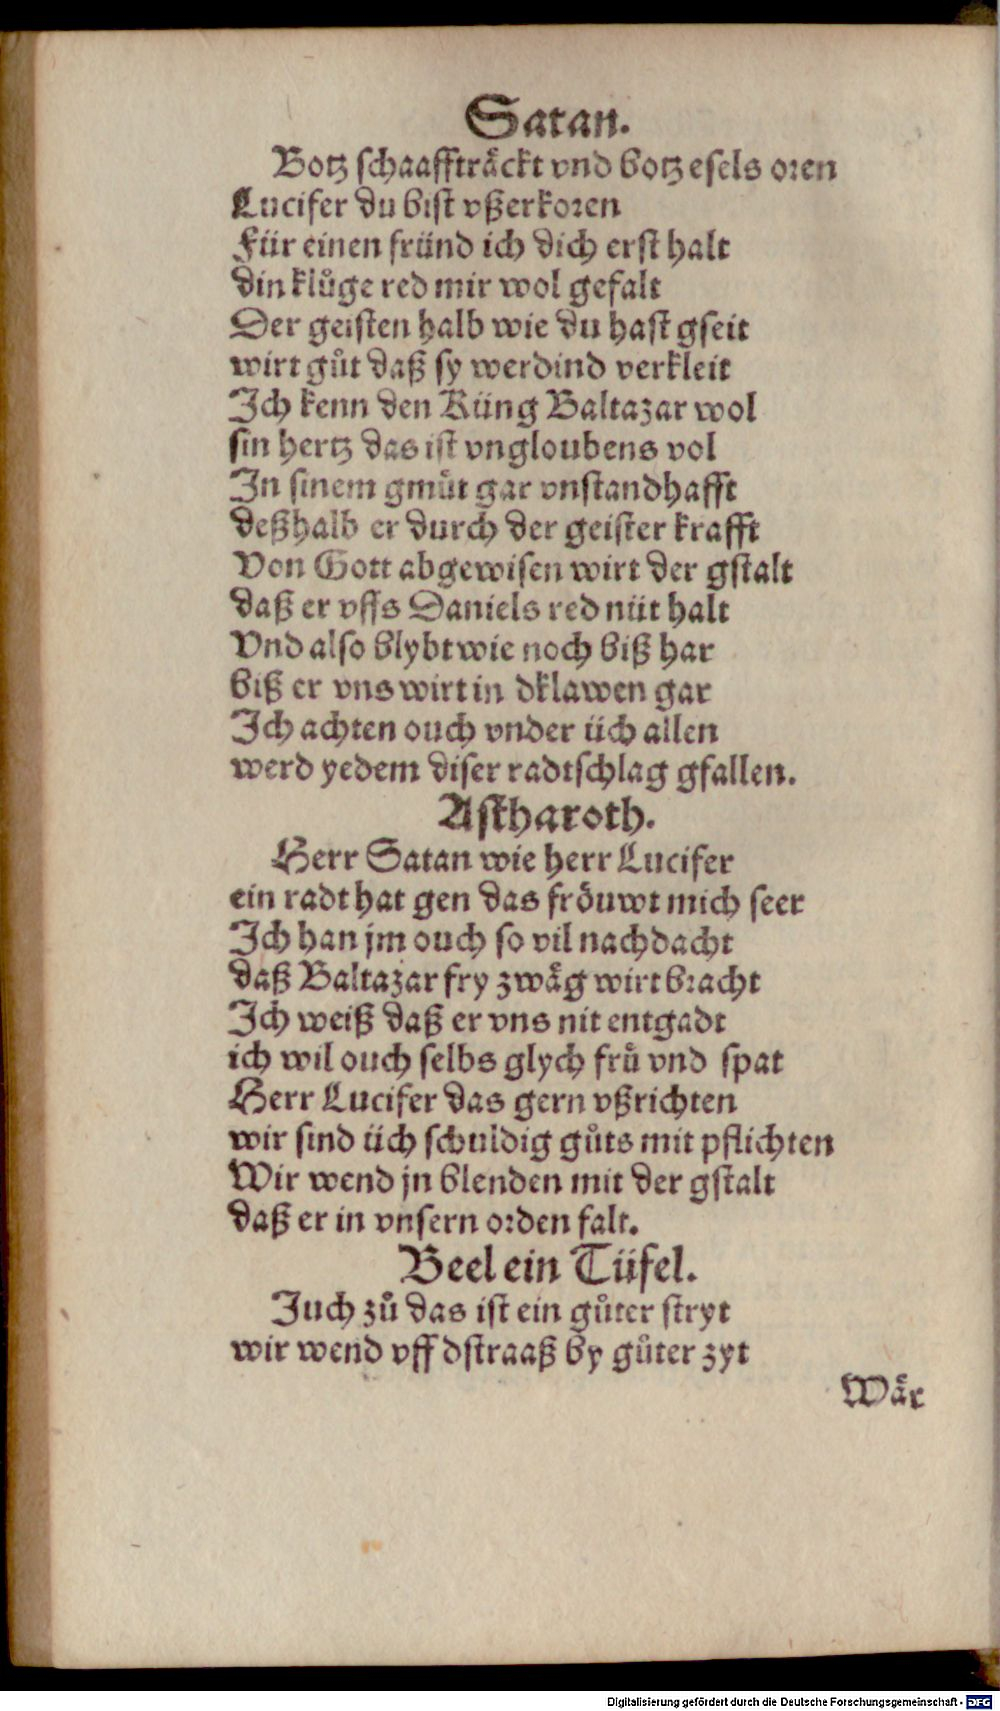 Satan.
Botz schaafftråckt vnd botz esels oren
Lucifer du bist vßerkoren
Für einen fründ ich dich erst halt
din klůge red mir wol gefalt
Der geisten halb wie du hast gseit
wirt gůt daß sy werdind verkleit
Ich kenn den Küng Baltazar wol
sin hertz das ist vngloubens vol
In sinem gmůt gar vnstandhafft
deßhalb er durch der geister krafft
Von Gott abgewisen wirt der gstalt
daß er vffs Daniels red nüt halt
Vnd also blybt wie noch biß har
biß er vns wirt in dklawen gar
Ich achten ouch vnder üch allen
werd yedem diser radtschlag gfallen.
Astharoth.
Herr Satan wie herr Lucifer
ein radt hat gen das fröuwt mich seer
Ich han jm ouch so vil nachdacht
daß Baltazar fry zwåg wirt bracht
Ich weiß daß er vns nit entgadt
ich wil ouch selbs glych frů vnd spat
Herr Lucifer das gern vßrichten
wir sind üch schuldig gůts mit pflichten
Wir wend jn blenden mit der gstalt
daß er in vnsern orden falt.
Beel ein Tüfel.
Juch zů das ist ein gůter stryt
wir wend vff dstraaß by gůter zyt
Wår
Digitalisierung gefördert durch die Deutsche Forschungsgemeinschaft - DFG